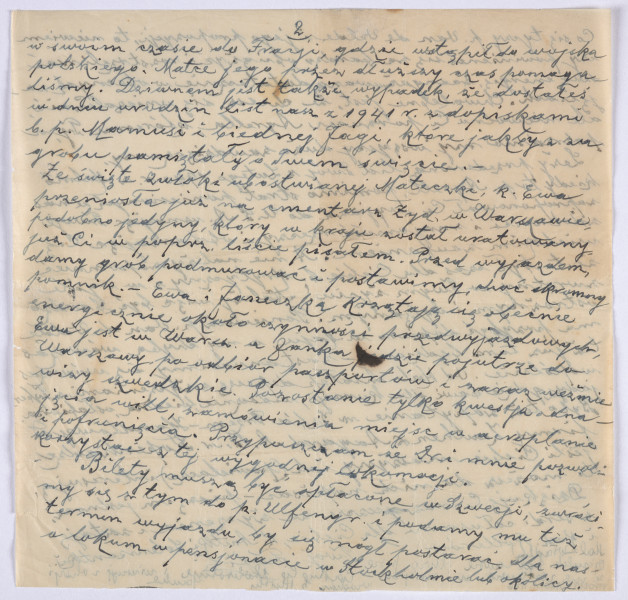 2.
w swoim czasie do Francji, gdzie wstąpił do wojska
polskiego. Matce jego przez dłuższy czas pomaga-
liśmy. Dziwnem jest także wypadek, że dostałeś
w dniu urodzin list nasz z 1941 r. z dopiskami
b. p. Mamusi i biednej Jagi, które jakby z za
grobu pamiętały o Twem święcie. —
Że święte zwłoki ubóstwianej Mateczki, k. Ewa
przeniosła już na cmentarz żyd. w Warszawie
podobno jedyny, który w kraju został uratowany,
już Ci w poprz. liście pisałem. Przed wyjazdem,
damy grób podmurować i postawimy choć skromny
pomnik. — Ewa i krzątają się obecnie
energicznie około czynności przedwyjazdowych,
Ewa jest w Warsz. a Janka jedzie pojutrze do
Warszawy po odbiór paszportów i zaraz weźmie
wizy szwedzkie. Pozostanie tylko kwestja
zamówienia miejsc w aeroplanie
i pofrunięcia. Przypuszczam że i mnie pozwoli
korzystać z tej wygodnej lokomocji.
Bilety muszą być opłacone w Szwecji, zwróci-
my się z tym do p. i podamy mu też
termin wyjazdu, by się mógł postarać dla nas
o lokum w pensjonacie w Stockholmie lub okolicy.